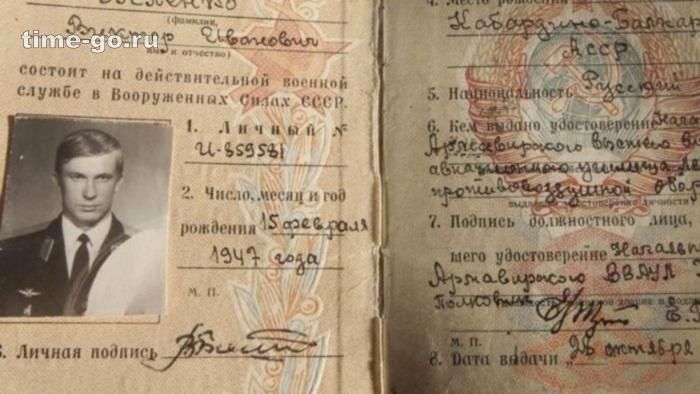 time-go.ru
(фамилия,
Виктор Иванович
имя и отчество)
состоит на действительной военной
службе в Вооруженных Силах СССР.
1. Личный №
И-859581
2. Число, месяц и год
рождения 15 февраля
1947 года
М. П.
3. Личная подпись
4. Место рождения
Кабардино-Балкар
АССР
5. Национальность Русский
6. Кем выдано удостоверение Нача
Армавирского высшего
авиационного училища
противовоздушной обор
7. Подпись должностного лица,
шего удостоверение Начальн
Армавирского ВВАУЛ
Полковник
М. П.
8. Дата выдачи „26 октября